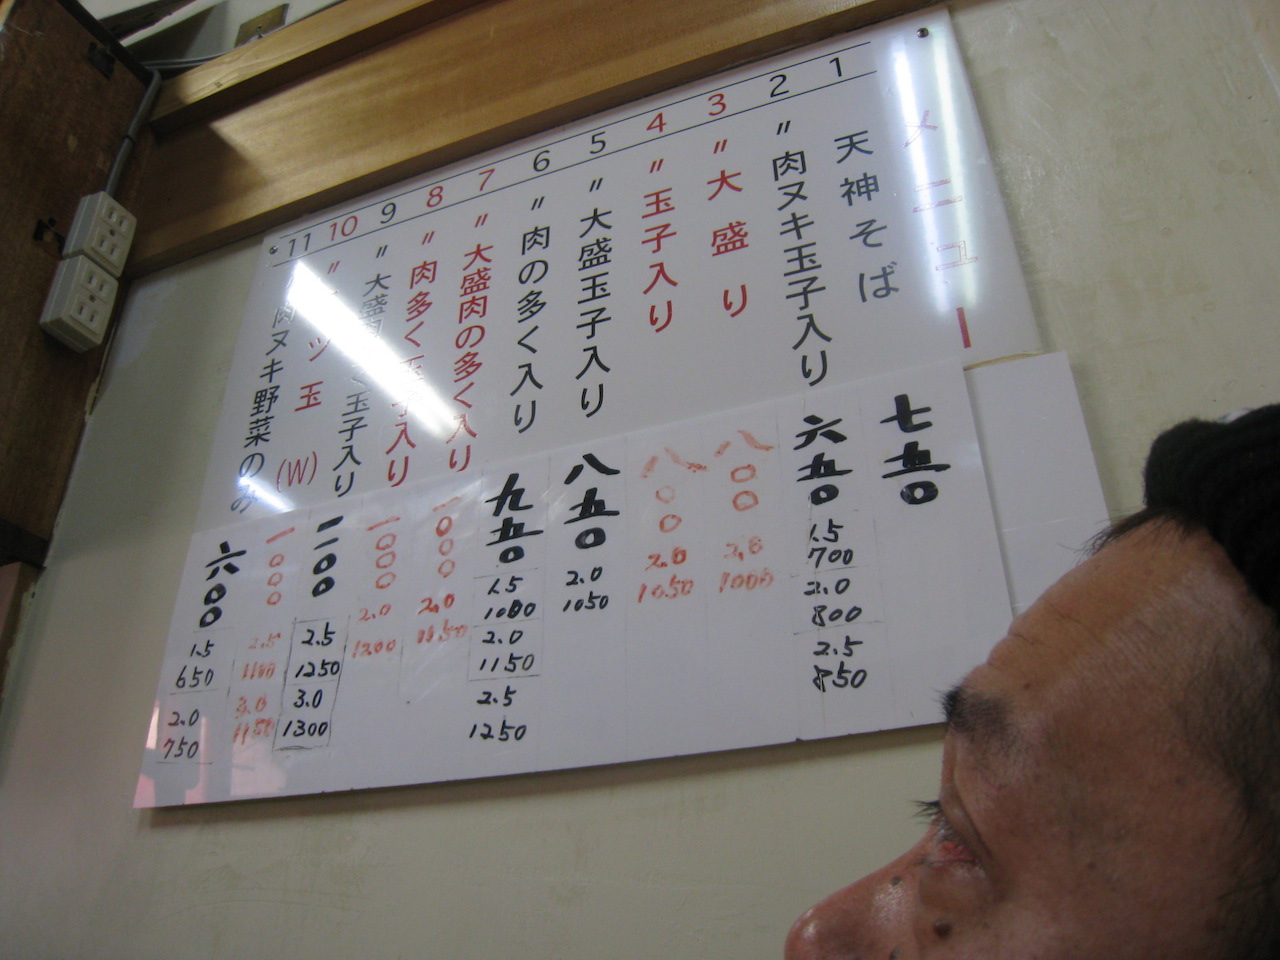 メニュー
1 天神そば 七五〇
2 〃肉ヌキ玉子入り 六五〇
1.5
700
2.0
800
2.5
850
3 〃大盛り 八〇〇
2.0
1000
4 〃玉子入り 八〇〇
2.0
1050
5 〃大盛玉子入り 八五〇
2.0
1050
6 〃肉の多く入り 九五〇
1.5
1080
2.0
1150
2.5
1250
7 〃大盛肉の多く入り 一〇〇〇
2.0
8 〃肉多く玉子入り 一〇〇〇
2.0
1200
9 〃大盛肉多く玉子入り 一一〇〇
2.5
1250
3.0
1300
10 〃ミツ玉(W) 一〇〇〇
2.5
1100
3.0
1150
11 〃肉ヌキ野菜のみ 六〇〇
1.5
650
2.0
750